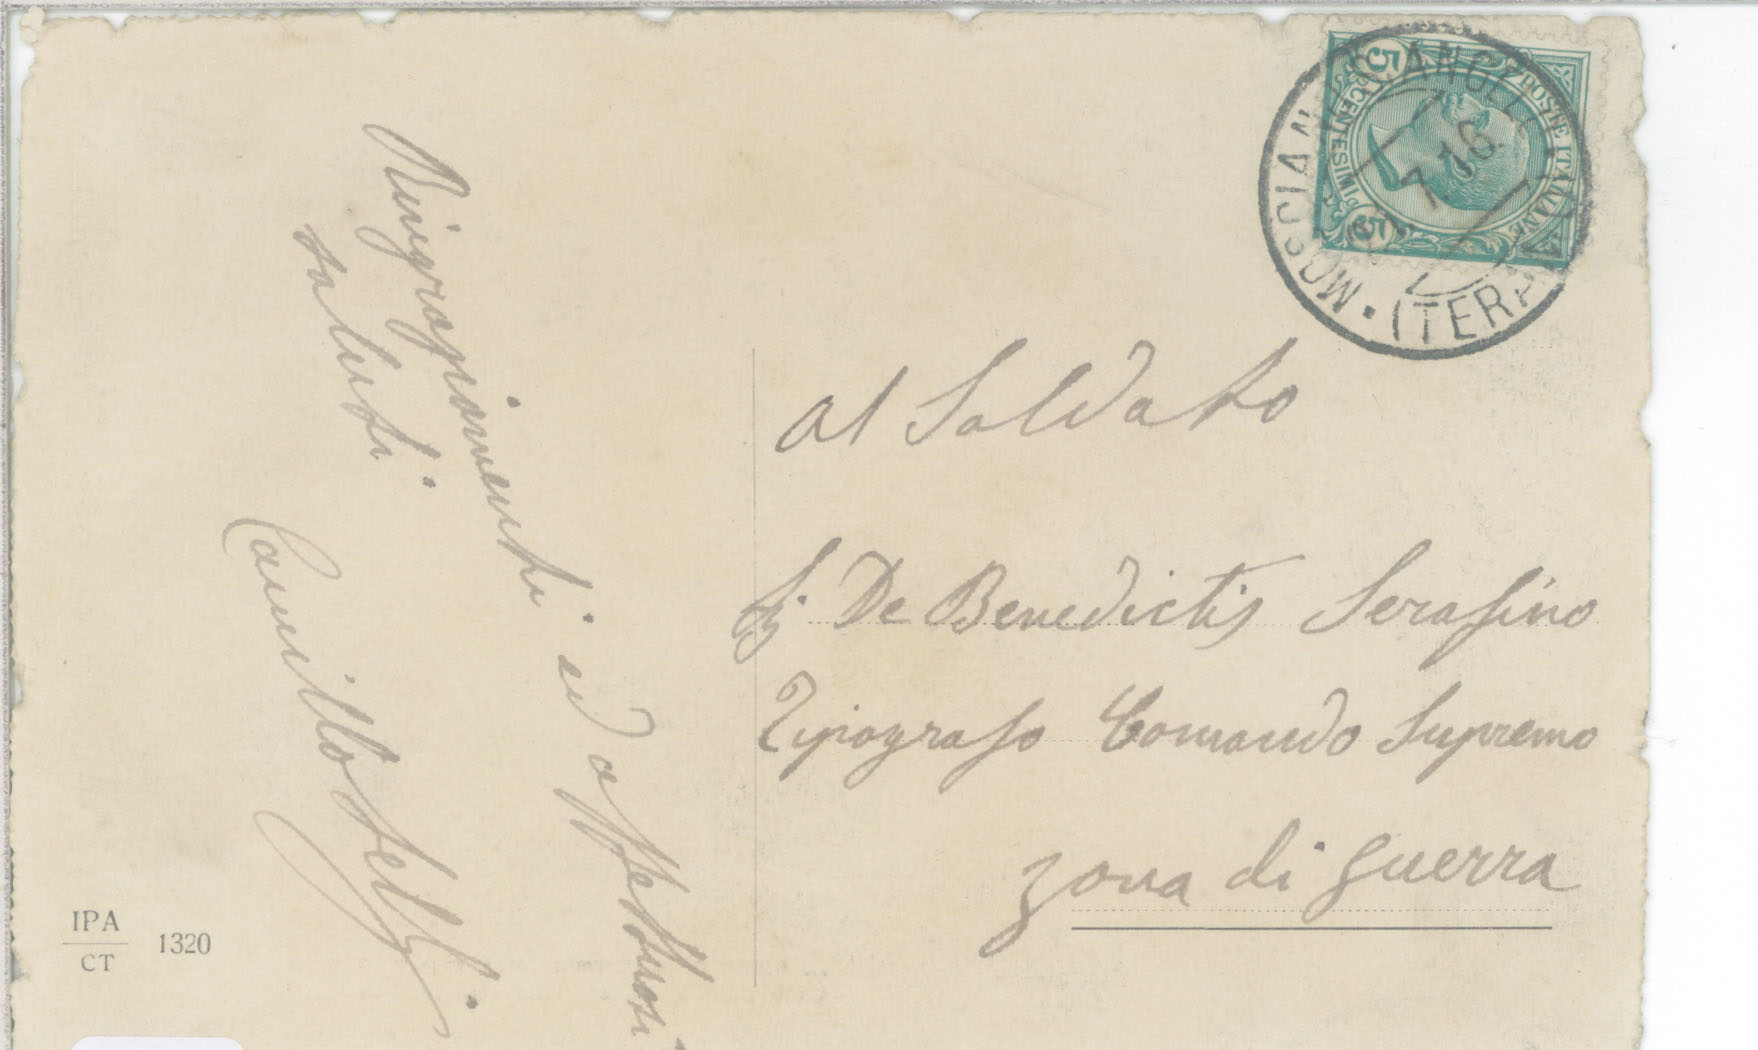 Ringraziamenti ed affettuosi
saluti
POSTE ITALIANE
CENTESIMI
5 5
MOSCIANO S. ANGELO (TERAMO)
7.16.
Al Soldato
De Benedictis Serafino
Tipografo Comando Supremo
Zona di guerra
IPA
CT
1320